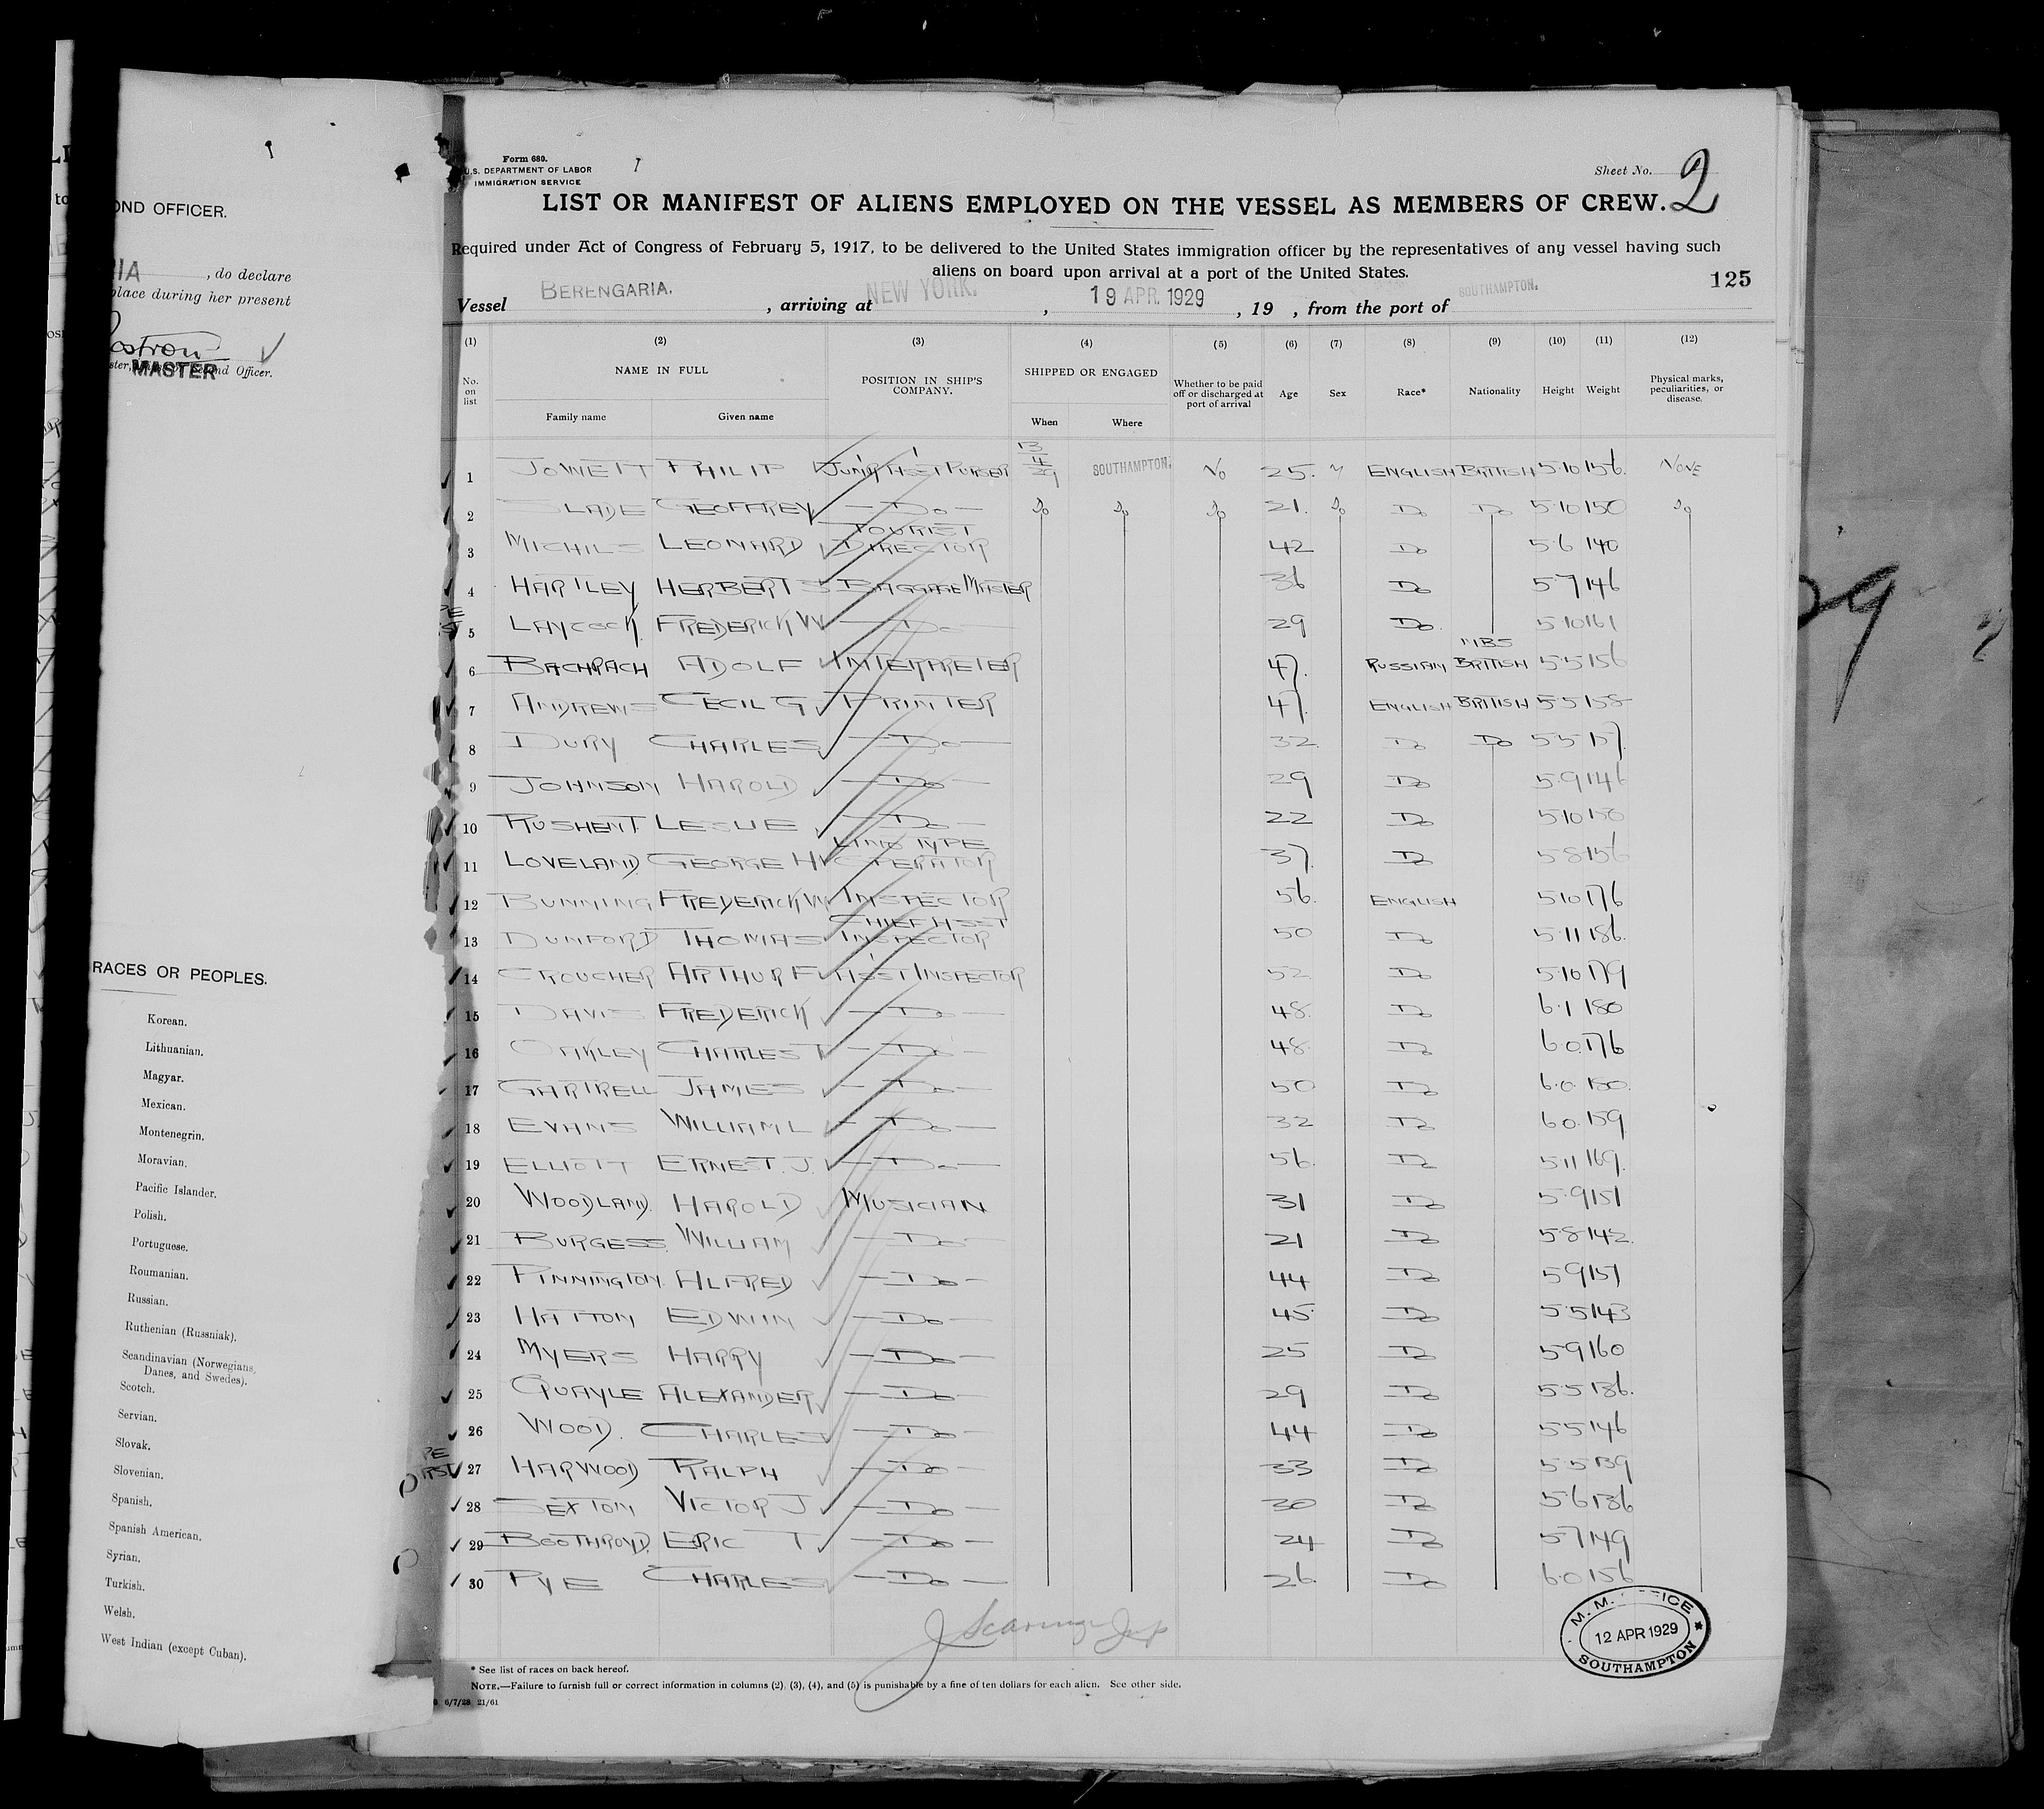 OND OFFICER.
IA , do declare
place during her present
ostron
MASTER nd Officer.
RACES OR PEOPLES.
Korean.
Lithuanian.
Magyar.
Mexican.
Montenegrin.
Moravian.
Pacific Islander.
Polish.
Portuguese.
Roumanian.
Russian.
Ruthenian (Russniak).
Scandinavian (Norwegians,
Danes, and Swedes).
Scotch.
Servian.
Slovak.
Slovenian.
Spanish.
Spanish American.
Syrian.
Turkish.
Welsh.
West Indian (except Cuban).
Form 680.
U.S. DEPARTMENT OF LABOR
IMMIGRATION SERVICE
Sheet No. 2
LIST OR MANIFEST OF ALIENS EMPLOYED ON THE VESSEL AS MEMBERS OF CREW.
Required under Act of Congress of February 5, 1917, to be delivered to the United States immigration officer by the representatives of any vessel having such
aliens on board upon arrival at a port of the United States.
125
Vessel BERENGARIA. , arriving at NEW YORK. , 19 APR. 1929 , 19 , from the port of SOUTHAMPTON.
(1) (2) (3) (4) (5) (6) (7) (8) (9) (10) (11) (12)
No. on list NAME IN FULL Family name Given name POSITION IN SHIP'S COMPANY. SHIPPED OR ENGAGED When Where Whether to be paid off or discharged at port of arrival Age Sex Race* Nationality Height Weight Physical marks, peculiarities, or disease.
1 JOWETT PHILIP JUNR ASST PURSER 13/4/29 SOUTHAMPTON. No 25. M ENGLISH BRITISH 5.10 156. NONE
2 SLADE GEOFFREY —Do— Do Do Do 21. Do Do Do 5.10 150 Do
3 MICHILS LEONARD TOURIST DIRECTOR 42 Do 5.6 140
4 HARTLEY HERBERT S BAGGAGE MASTER 36 Do 5.7 146
5 LAYCOCK. FREDERICK W —Do— 29 Do. 5.10 161
6 BACHRACH ADOLF INTERPRETER 47. RUSSIAN BRITISH 5.5 156
7 ANDREWS CECIL G PRINTER 47. ENGLISH BRITISH 5.5 158
8 DURY CHARLES —Do— 32. Do Do 5.5 157.
9 JOHNSON HAROLD —Do— 29 Do 5.9 146
10 RUSHENT. LESLIE —Do— 22 Do 5.10 150
11 LOVELAND GEORGE H LINO TYPE OPERATOR 37. Do 5.8 156
12 BUNNING FREDERICK W INSPECTOR 56. ENGLISH 5.10 176
13 DUNFORD THOMAS CHIEF ASST INSPECTOR 50 Do 5.11 186.
14 CROUCHER ARTHUR F ASST INSPECTOR 52 Do 5.10 179
15 DAVIS FREDERICK —Do— 48. Do 6.1 180
16 OAKLEY CHARLES T —Do— 48. Do 6.0. 176
17 GARTRELL JAMES —Do— 50 Do 6.0. 180.
18 EVANS WILLIAM L —Do— 32 Do 6.0. 159
19 ELLIOTT ERNEST. J. —Do— 56. Do 5.11 169.
20 WOODLAND. HAROLD MUSICIAN 31 Do 5.9 151
21 BURGESS. WILLIAM —Do— 21 Do 5.8 142.
22 PINNINGTON. ALFRED —Do— 44 Do 5.9 151
23 HATTON EDWIN —Do— 45 Do 5.5 143
24 MYERS HARRY —Do— 25 Do 5.9 160
25 QUAYLE ALEXANDER —Do— 29 Do 5.5 136.
26 WOOD. CHARLES —Do— 44 Do 5.5 146
27 HARWOOD RALPH —Do— 33 Do 5.5 139
28 SEXTON VICTOR J —Do— 30 Do 5.6 136
29 BOOTHROYD. ERIC T —Do— 24 Do 5.7 149
30 PYE CHARLES —Do— 26. Do 6.0 156
M. M. OFFICE
12 APR 1929
SOUTHAMPTON
* See list of races on back hereof.
NOTE.—Failure to furnish full or correct information in columns (2), (3), (4), and (5) is punishable by a fine of ten dollars for each alien. See other side.
6/7/28 21/61